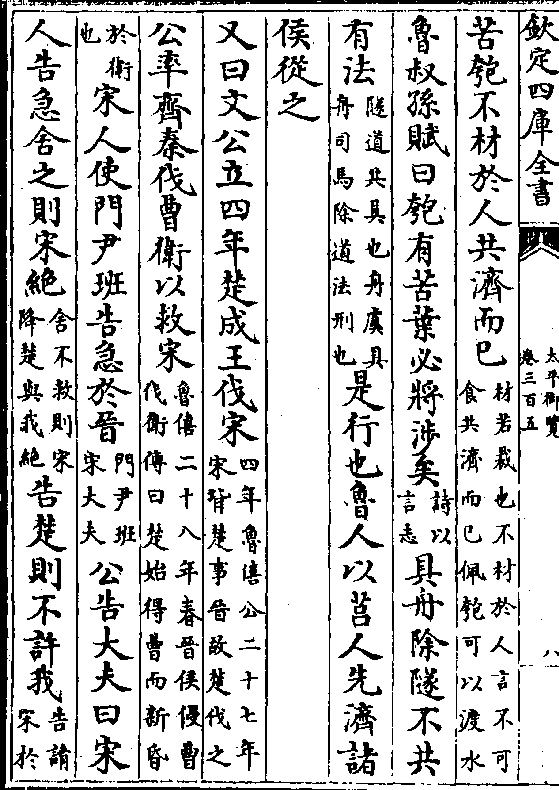 欽定四庫全書
太平御覽
卷三百五
八
苦匏不材於人共濟而已材若裁也不材於人言不可食共濟而已佩匏可以渡水
魯叔孫賦曰匏有苦葉必將涉矣詩以言志具舟除隧不共
有法隧道共具也舟虞具舟司馬除道法刑也是行也魯人以莒人先濟諸
侯從之
又曰文公立四年楚成王伐宋四年魯僖公二十七年宋背楚事晉故楚伐之
公率齊秦伐曹衛以救宋魯僖二十八年春晉侯侵曹伐衛傳曰楚始得曹而新昏
於衛也宋人使門尹班告急於晉門尹班宋大夫公告大夫曰宋
人告急舍之則宋絶舍不救則宋降楚與我絶告楚則不許我告請宋於